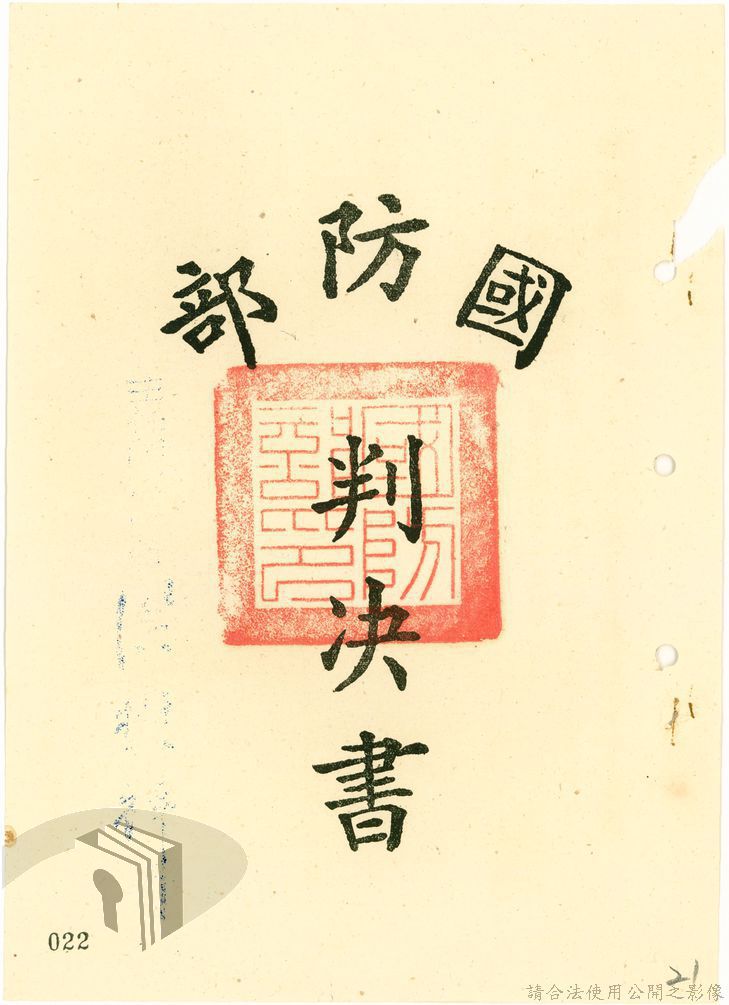 國防部
判決書
國防部印
022
21
請合法使用公開之影像